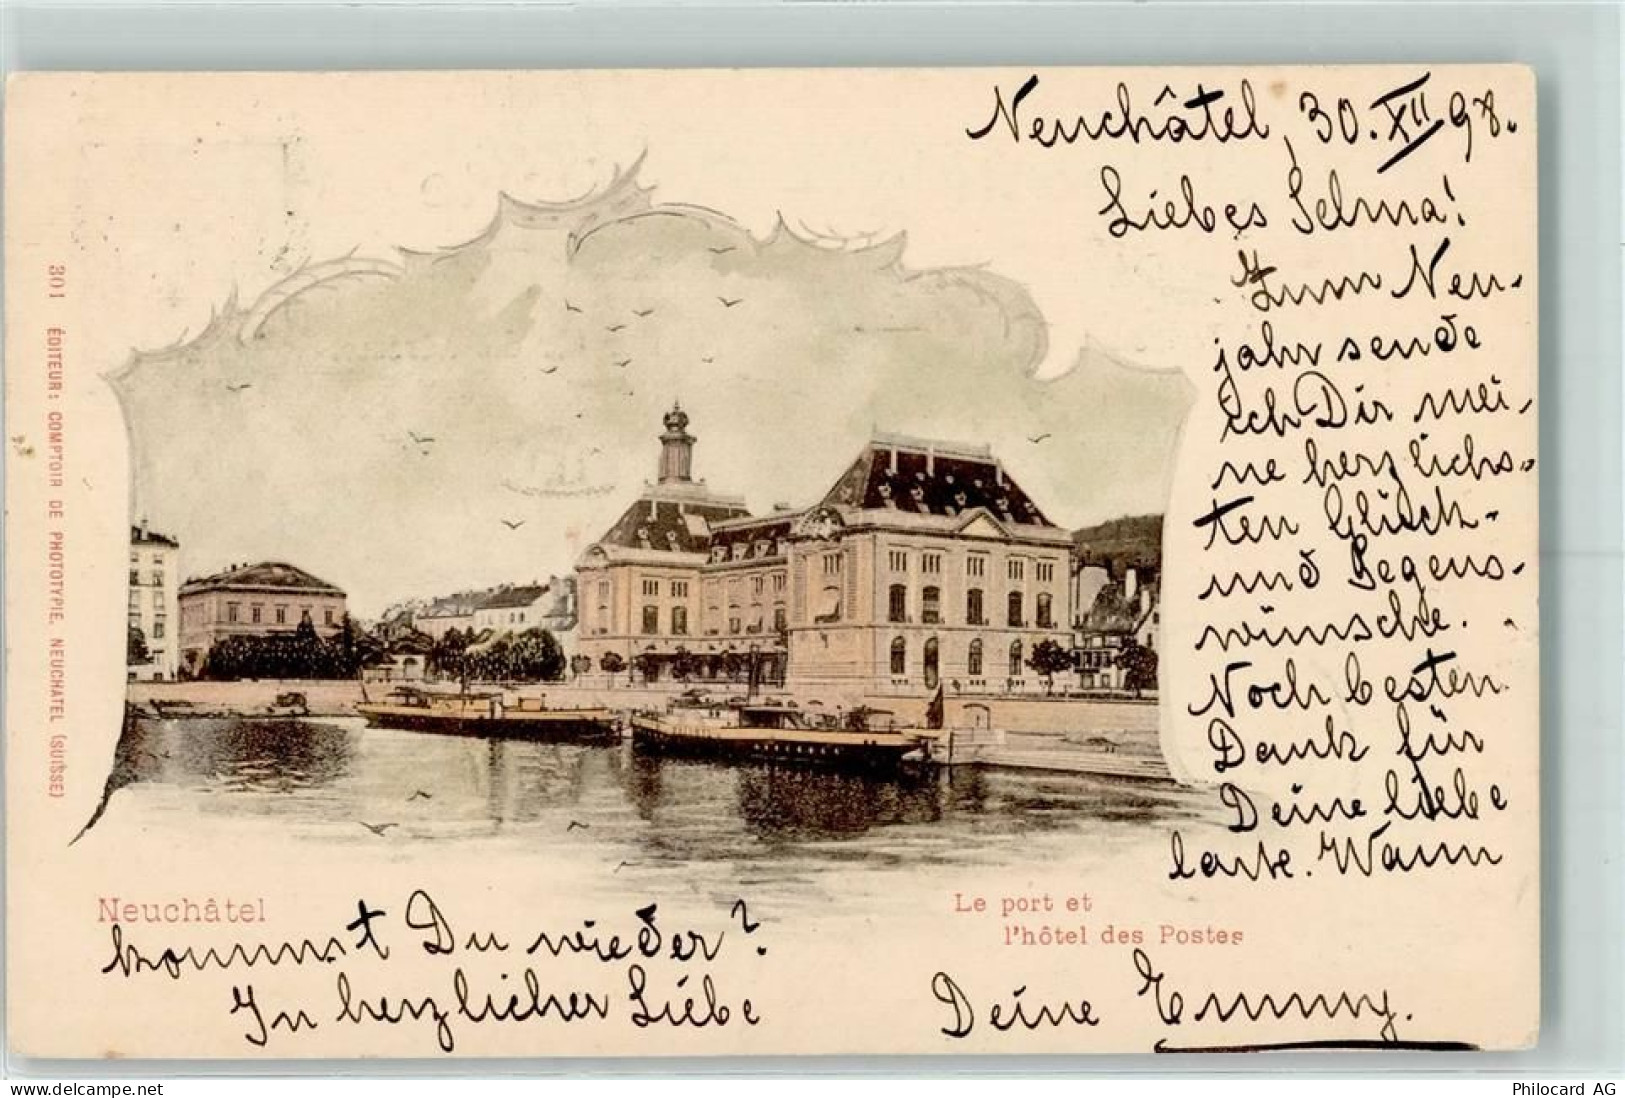 Neuchâtel, 30. XII 98.
Liebes Selma!
Zum Neu-
jahr sende
ich Dir mei-
ne herzlichs-
ten Glück-
und Segens-
wünsche.
Noch besten
Dank für
Deine liebe
Karte. Wann
kommst Du wieder?
In herzlicher Liebe
Deine Emmy.
Neuchâtel
Le port et
l'hôtel des Postes
301 ÉDITEUR: COMPTOIR DE PHOTOTYPIE. NEUCHATEL (SUISSE)
www.delcampe.net
Philocard AG